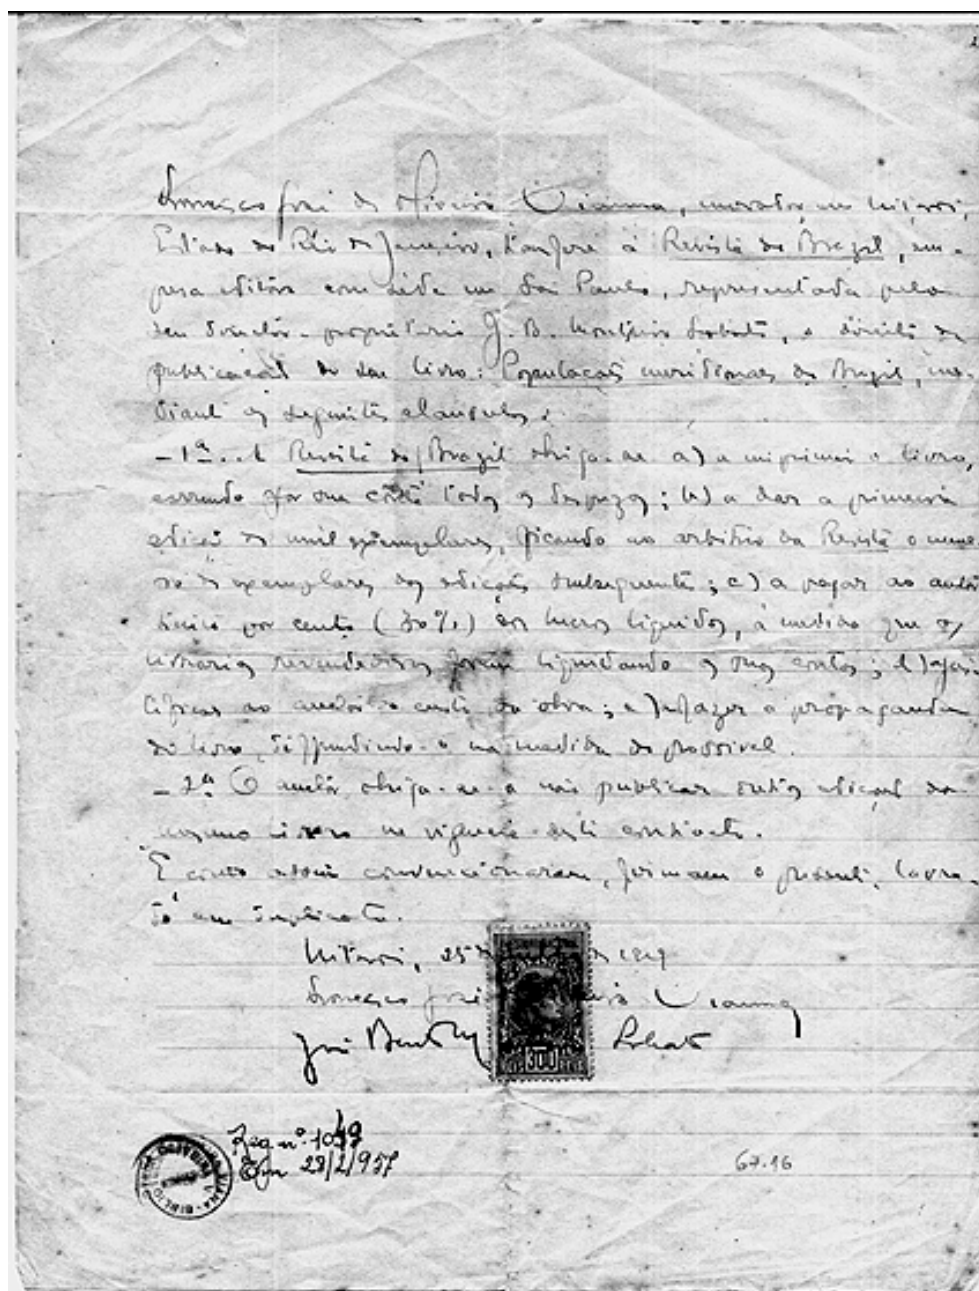 Francisco José de Oliveira Vianna, morador em Niteroi,
Estado do Rio de Janeiro, transfere á Revista do Brazil, em-
presa editora com séde em São Paulo, representada pelo
seu director-proprietario J. B. Monteiro Lobato, o direito de
publicação do seu livro: Populações meridionaes do Brazil, me-
diante as seguintes clausulas:
- 1ª.. A Revista do Brazil obriga-se a) a imprimir o livro,
correndo por sua conta todas as despezas; b) a dar a primeira
edição de mil exemplares, ficando ao arbitrio da Revista o nume-
ro de exemplares das edições subsequentes; c) a pagar ao autor
por cento (30%) dos lucros liquidos, á medida que os
livrarias revendedoras forem liquidando as suas contas; d)
ao autor o custo da obra; e) a fazer a propaganda
do livro, diffundindo-o na medida do possivel.
- 2ª O autor obriga-se a não publicar outras edições do
mesmo livro na vigencia deste contracto.
E como assim convencionaram, firmam o presente, lavra-
do em duplicata.
Niteroi, 25 de 1919
Francisco José Vianna
José Bento Lobato
300
Reg nº 1049
Em 28/2/957
67.16